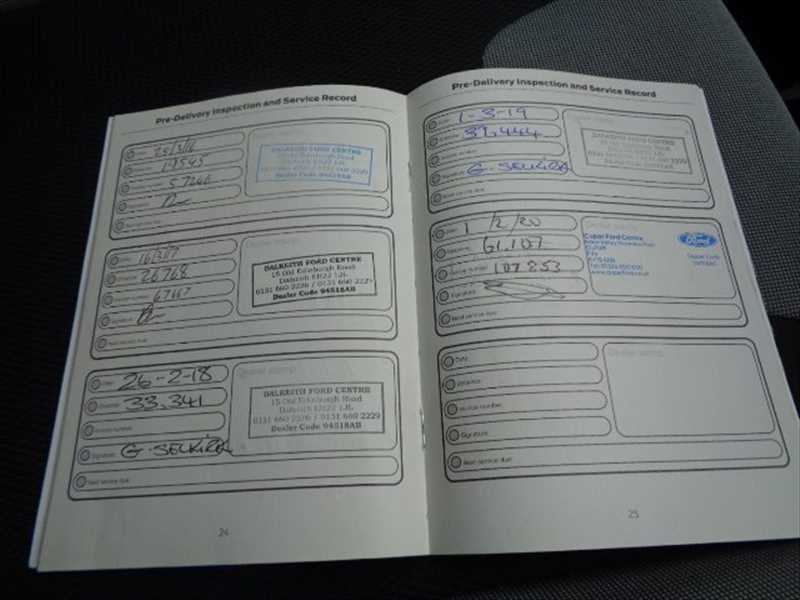 Pre-Delivery Inspection and Service Record
25/3/16
19545
57206
DALKEITH FORD CENTRE
15 Old Edinburgh Road
Dalkeith EH22 1JL
0131 660 2226 / 0131 660 2229
Dealer Code 94518AB
Next service due
16/3/17
26768
67667
Signature
DALKEITH FORD CENTRE
15 Old Edinburgh Road
Dalkeith EH22 1JL
0131 660 2226 / 0131 660 2229
Dealer Code 94518AB
Next service due
Date 26-2-18
Distance 33,341
Invoice number
Signature G. SELKIRK
Dealer stamp
DALKEITH FORD CENTRE
15 Old Edinburgh Road
Dalkeith EH22 1JL
0131 660 2226 / 0131 660 2229
Dealer Code 94518AB
Next service due
24
Pre-Delivery Inspection and Service Record
1-3-19
39,444
G. SELKIRK
DALKEITH FORD CENTRE
Next service due
Date 1/2/20
61,107
Invoice number 107853
Signature
Cupar Ford Centre
Fife
Ford
Next service due
Date
Distance
Invoice number
Signature
Dealer stamp
Next service due
25